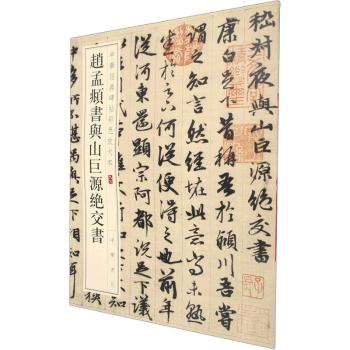 嵇叔夜與山巨源絶交書
康白足下昔稱吾於潁川吾嘗
謂之知言然經怪此意尚未熟
悉於足下何從便得之也前年
從河東還顯宗阿都説足下議
中華經典碑帖彩色放大本
趙孟頫書與山巨源絶交書
中華書局